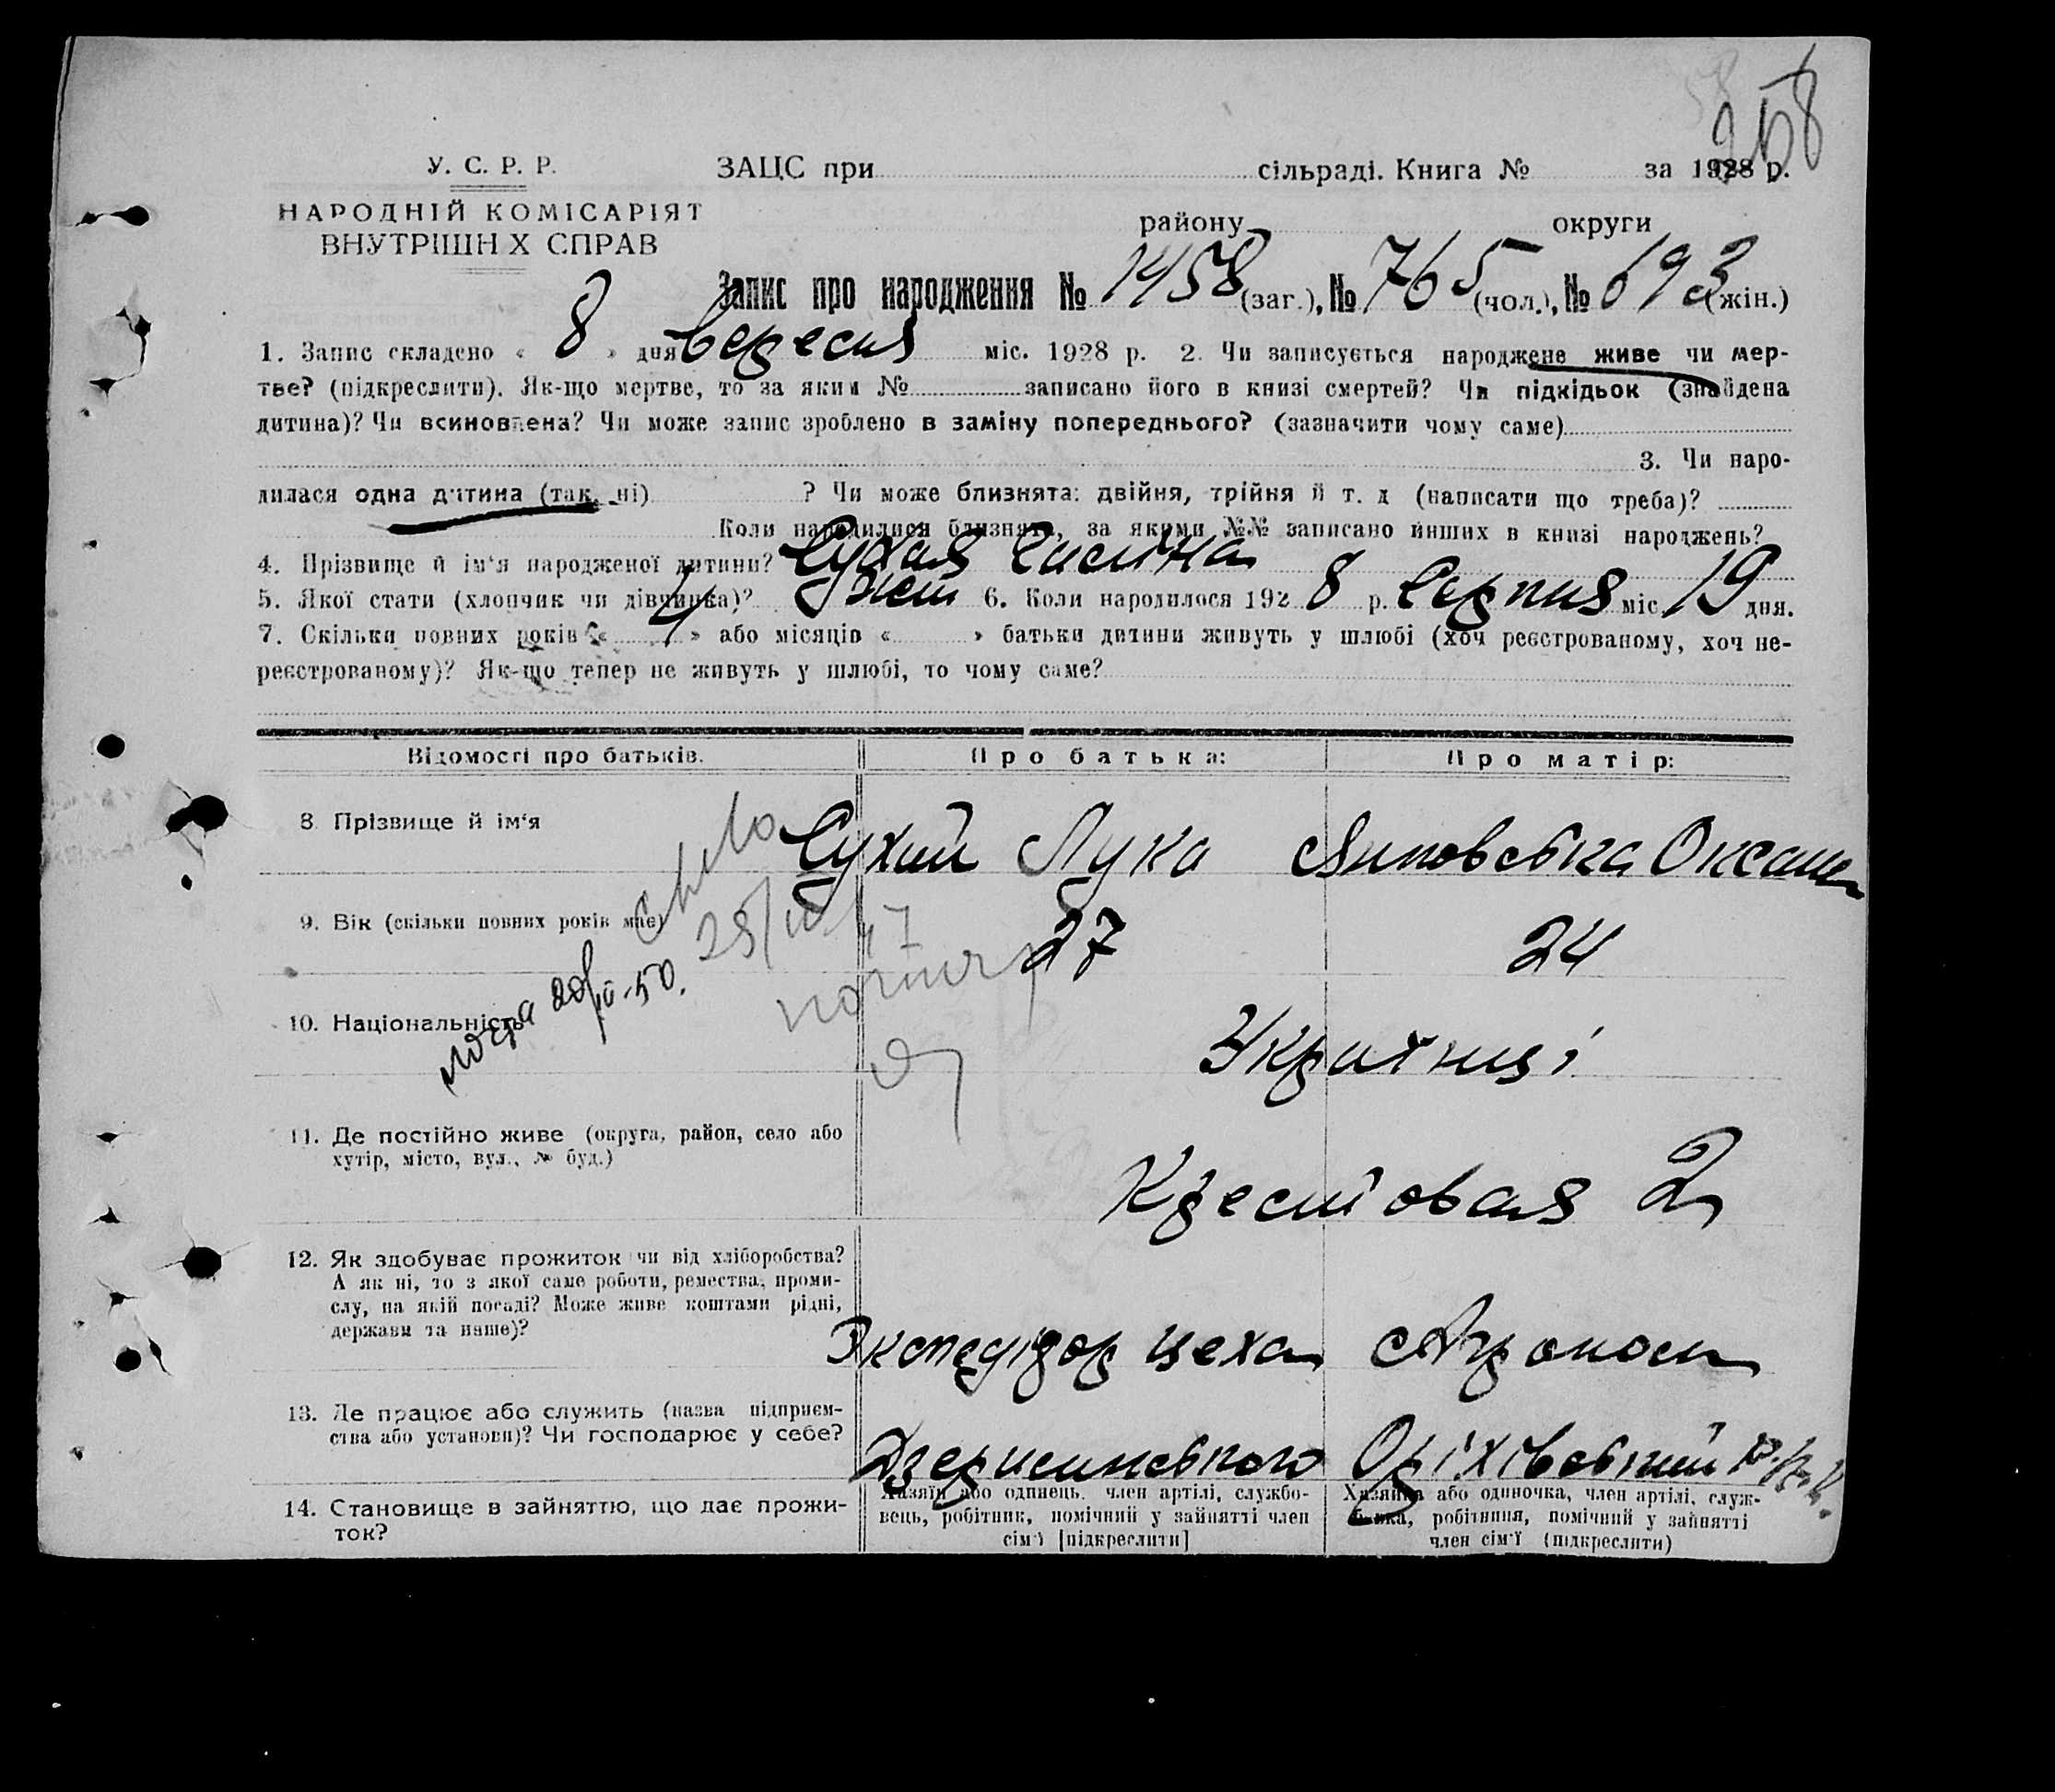 258
У. С. Р. Р.
НАРОДНІЙ КОМІСАРІЯТ
ВНУТРІШН Х СПРАВ
ЗАЦС при сільраді. Книга № за 1928 р.
району округи
Запис про народження № 1458 (заг.), № 765 (чол.), № 693 (жін.)
1. Запис складено « 8 » дня вересня міс. 1928 р. 2. Чи записується народжене живе чи мер-
тве? (підкреслити). Як-що мертве, то за яким № записано його в книзі смертей? Чи підкідьок (знайдена
дитина)? Чи всиновлена? Чи може запис зроблено в заміну попереднього? (зазначити чому саме)
3. Чи наро-
дилася одна дитина (так, ні) ? Чи може близнята: двійня, трійня й т. д (написати що треба)?
Коли народилися близнята, за якими №№ записано инших в книзі народжень?
4. Прізвище й ім'я народженої дитини? Сухая
5. Якої стати (хлопчик чи дівчинка)? жін 6. Коли народилося 192 8 р. Серпня міс. 19 дня.
7. Скільки повних років « 4 » або місяців « » батьки дитини живуть у шлюбі (хоч реєстрованому, хоч не-
реєстрованому)? Як-що тепер не живуть у шлюбі, то чому саме?
Відомості про батьків. Про батька: Про матір:
8 Прізвище й ім'я Сухий Лука Липовська Оксана
9. Вік (скільки повних років має) 27 24
10. Національність Українці
11. Де постійно живе (округа, район, село або
хутір, місто, вул., № буд.)
Крестовая 2
12. Як здобуває прожиток чи від хліборобства?
А як ні, то з якої саме роботи, ремества, проми-
слу, на якій посаді? Може живе коштами рідні,
держави та инше)?
Экспедітор цеха Агроном
13. Де працює або служить (назва підприєм-
ства або установи)? Чи господарює у себе?
Дзержинського Оріхівський
14. Становище в зайняттю, що дає прожи-
ток?
Хазяїн або одинець, член артілі, службо-
вець, робітник, помічний у зайнятті член
сім'ї [підкреслити]
Хазяйка або одиночка, член артілі, служ-
бовка, робітниця, помічний у зайнятті
член сім'ї (підкреслити)